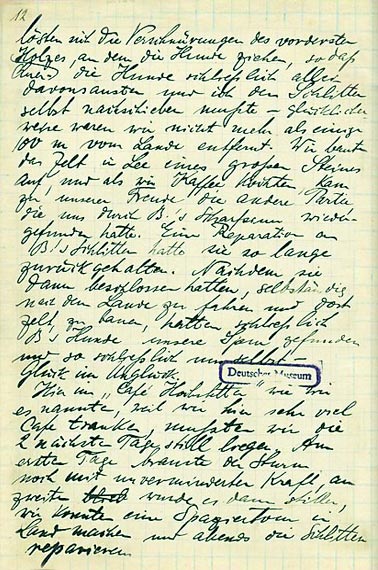 12
lösten sich die Verschnürungen des vordersten
Holzes, an dem die Hunde ziehen, so daß
die Hunde schließlich allein
davonsausten und ich den Schlitten
selbst nachschieben mußte – glücklicher
weise waren wir nicht mehr als einige
100 m vom Lande entfernt. Wir bauten
das Zelt in Lee eines großen Steines
auf, und als wir Kaffee kochten, kam
zu unserer Freude die andere Partie
die uns durch B.'s wieder-
gefunden hatte. Eine Reparation an
B.'s Schlitten hatte sie so lange
zurückgehalten. Nachdem sie
dann beschlossen hatten, selbständig
nach dem Lande zu fahren und dort
Zelt zu bauen, hatten schließlich
B's Hunde unsere Spur gefunden
und so schließlich uns selbst –
Glück im Unglück.
Deutsches Museum
Hier im "Café" wie wir
es nannten, weil wir hier sehr viel
Café tranken, mußten wir die
2 nächsten Tage still liegen. Am
ersten Tage brauste der Sturm
noch mit unverminderter Kraft, am
zweiten wurde es dann stiller,
wir konnten eine Spaziertour in
Land machen und abends die Schlitten
reparieren